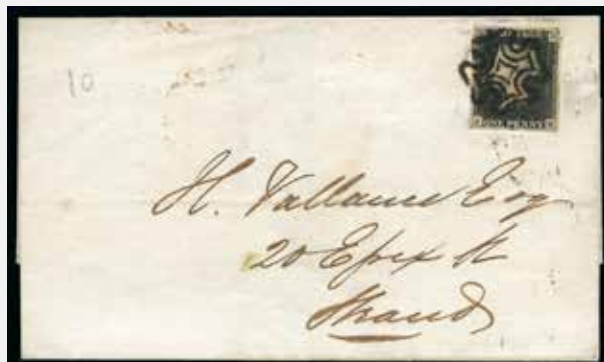 10
ONE PENNY
H. Vallance Esq
20 Essex St
Strand